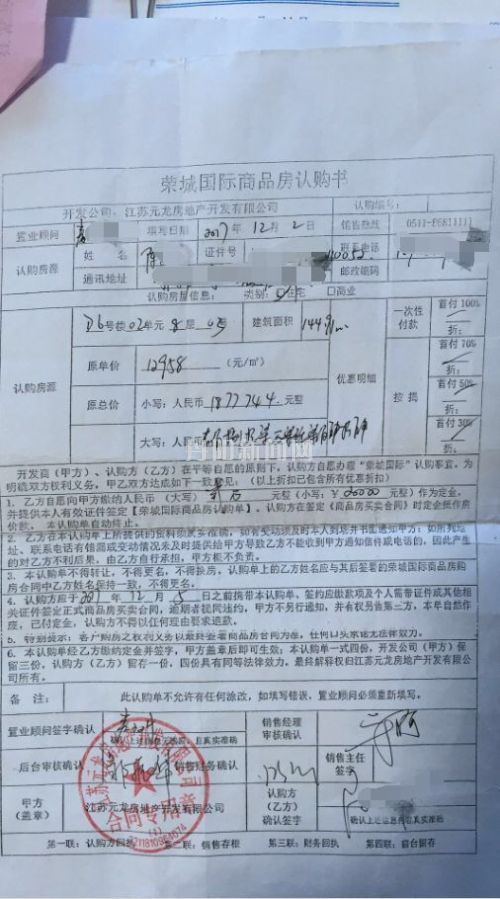 荣城国际商品房认购书
开发公司：江苏元龙房地产开发有限公司 认购编号：
置业顾问 填写日期 2017年12月2日 销售热线 0511-86811111
认购房源 姓名 证件号 联系电话
通讯地址 邮政编码
认购房屋信息： 类别：住宅 □商业
认购房源 D6号楼02单元 建筑面积 一次性付款 首付100% 折：
原单价 12958 （元/㎡） 优惠明细 按揭 首付70% 折：
原总价 小写：人民币 1877744 元整 首付50% 折：
大写：人民币 首付30% 折：
开发商（甲方）、认购方（乙方）在平等自愿的原则下，认购方自愿办理“荣城国际”认购事宜，为
明确双方权利义务，甲乙双方达成如下一致意见：（以上折扣已包含所有优惠折扣）
1、乙方自愿向甲方缴纳人民币（大写） 元整（小写：¥20000 元整）作为定金，
并提供本人有效证件签定【荣城国际商品房认购单】，认购方在签定《商品房买卖合同》时定金抵作房
价款，本认购单自动终止。
2、乙方在本认购单上所提供的资料须真实准确，如有变动须及时本人到总并书面通知甲方；如所属地
址、联系电话有错漏或变动情况未及时提供给甲方导致乙方不能收到甲方通知信件或电话的，因此产生
的对乙方不利后果，由乙方自行承担，甲方概不负责。
3、本认购单不得转让，不得更名，不得换房，认购单上的乙方姓名应与其后签署的荣城国际商品房购
房合同中乙方姓名保持一致，不得更名。
4、乙方应于2017年12月5日之前携带本认购单、签约应缴款项及个人需带证件或其他相
关证件签定正式商品房买卖合同，逾期者视同违约，甲方不另行通知，并有权另售第三方，本单自然作
废，已付定金，认购方不得以任何理由要求退款。
5、特别提示：客户购房之权利义务以最终签署商品房合同为准，任何口头承诺无法律效力。
6、本认购单经乙方缴纳定金并签字，甲方盖章后即可生效；本认购单一式四份，开发公司（甲方）保
留三份，认购方（乙方）留存一份，四份具有同等法律效力。最终解释权归江苏元龙房地产开发有限公
司所有。
备注： 此认购单不允许有任何涂改，如填写错误，置业顾问必须重新填写。
置业顾问签字确认 销售经理审核确认
后台审核确认 销售财务确认 销售主任签字
甲方（盖章） 江苏元龙房地产开发有限公司 认购方（乙方）确认签字 确认上述信息有名且真实准确
合同专用章
（1）
第一联：认购方回执 第二联：销售存根 第三联：财务回执 第四联：前台留存